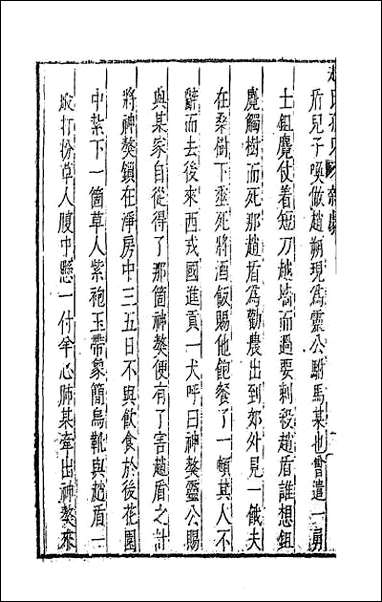 趙氏孤兒 雜劇
所兒子喚做趙朔現為靈公駙馬某也曾遣一勇
士鉏麑仗着短刀越墻而過要刺殺趙盾誰想鉏
麑觸樹而死那趙盾為勸農出到郊外見一餓夫
在桑樹下垂死將酒飯賜他飽餐了一頓其人不
辭而去後來西戎國進貢一犬呼曰神獒靈公賜
與某家自從得了那箇神獒便有了害趙盾之計
將神獒鎖在淨房中三五日不與飲食於後花園
中紮下一箇草人紫袍玉帶象簡烏靴與趙盾一
般打扮草人腹中懸一付羊心肺某牽出神獒來